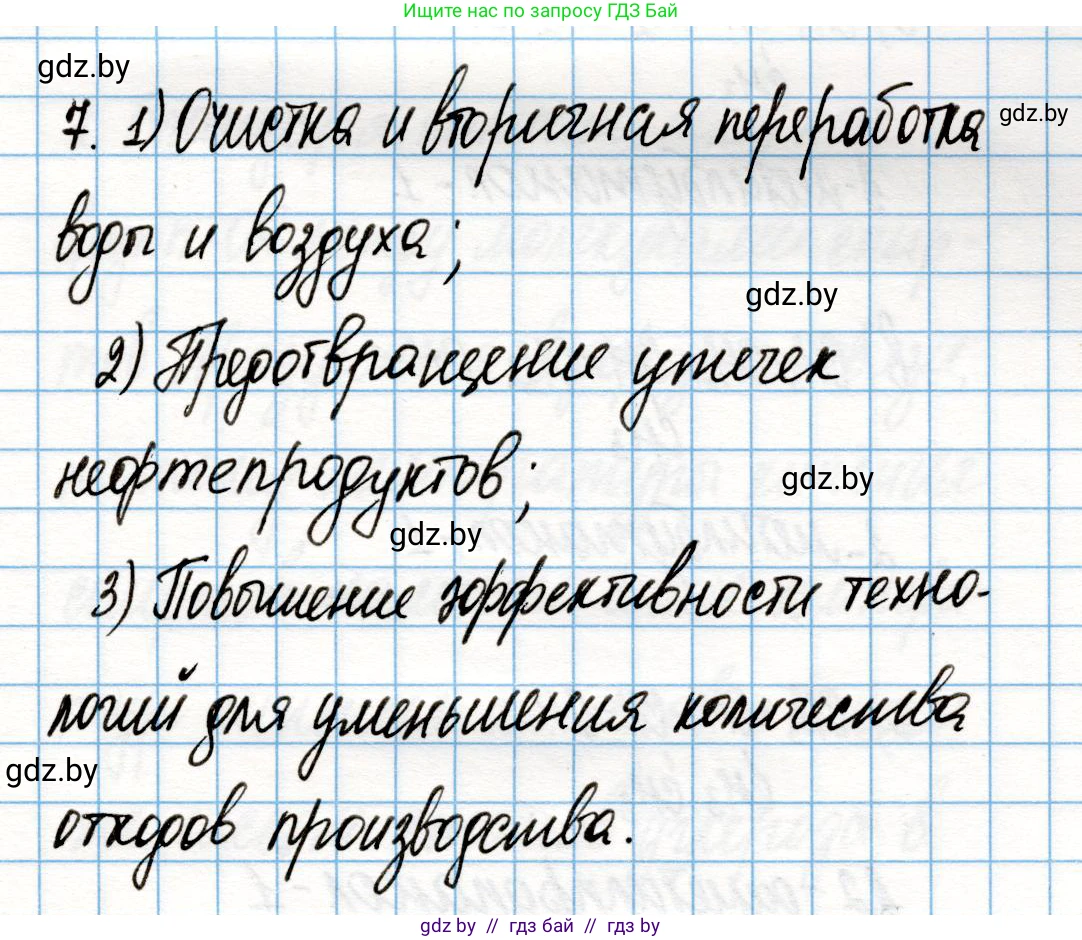 Ищите нас по запросу ГДЗ Бай
gdz.by
7. 1) Очистка и вторичная переработка
gdz.by
воды и воздуха;
gdz.by
2) Предотвращение утечек
нефтепродуктов;
gdz.by
gdz.by
3) Повышение эффективности техно-
логий для уменьшения количества
gdz.by
отходов производства.
gdz.by // гдз бай // гдз by